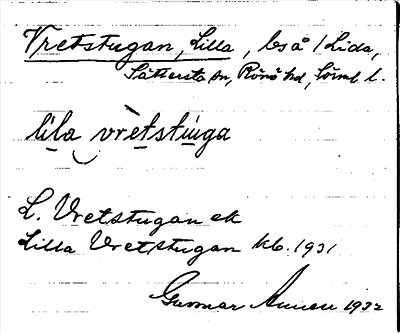 Vretstugan, Lilla, bs å Lida,
Sättersta sn, Rönö hd, Sörml. l.
lila vrètstùga
L. Vretstugan ek
Lilla Vretstugan kb. 1931
Gunnar 1932